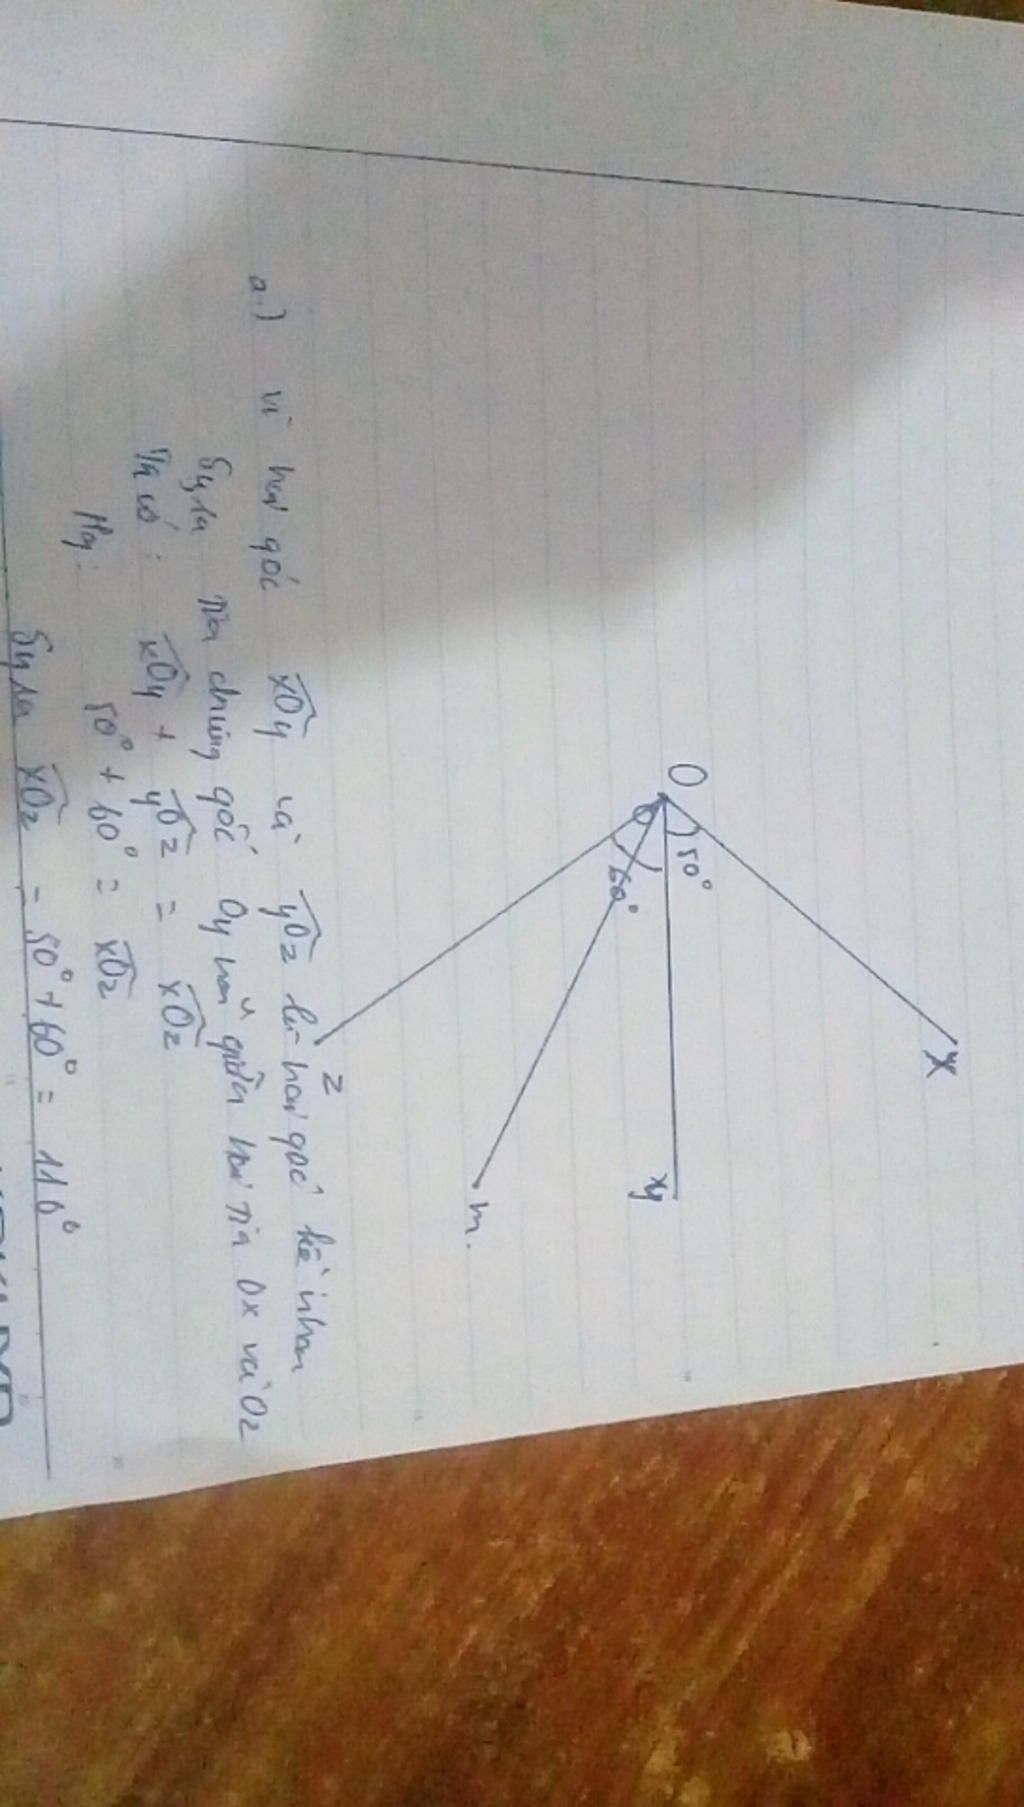 O
x
50°
60°
y
m.
z
a.) Vì hai góc xOy và yOz là hai góc kề nhau
Suy ra Tia chung gốc Oy nằm giữa hai tia Ox và Oz
Ta có: xOy + yOz = xOz
Hay: 50° + 60° = xOz
Suy ra xOz = 50° + 60° = 110°